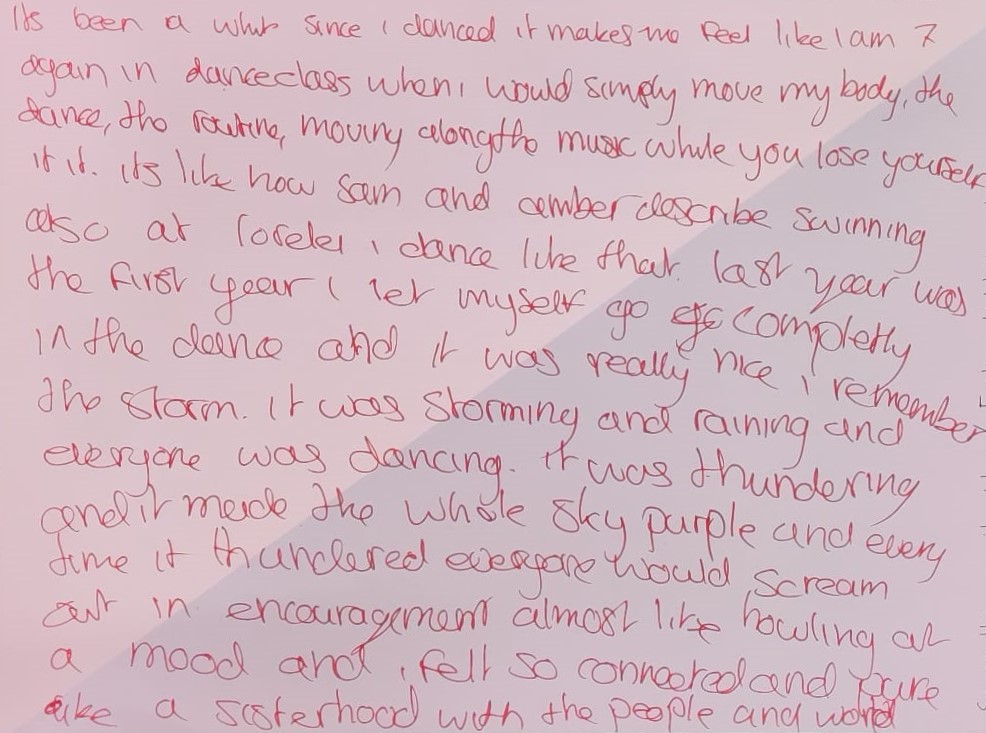 Its been a while since i danced it makes me feel like I am 7
again in danceclass when i would simply move my body, the
dance, the routine, moving along the music while you lose yourself
it it. its like how sam and amber describe swinning
also at i dance like that. last year was
the first year i let myself go completly
in the dance and it was really nice i remember
the storm. it was storming and raining and
everyone was dancing. it was thundering
and it made the whole sky purple and every
time it thundered everyone would scream
out in encouragement almost like howling at
a mood and i fell so connected and pure
like a sisterhood with the people and world